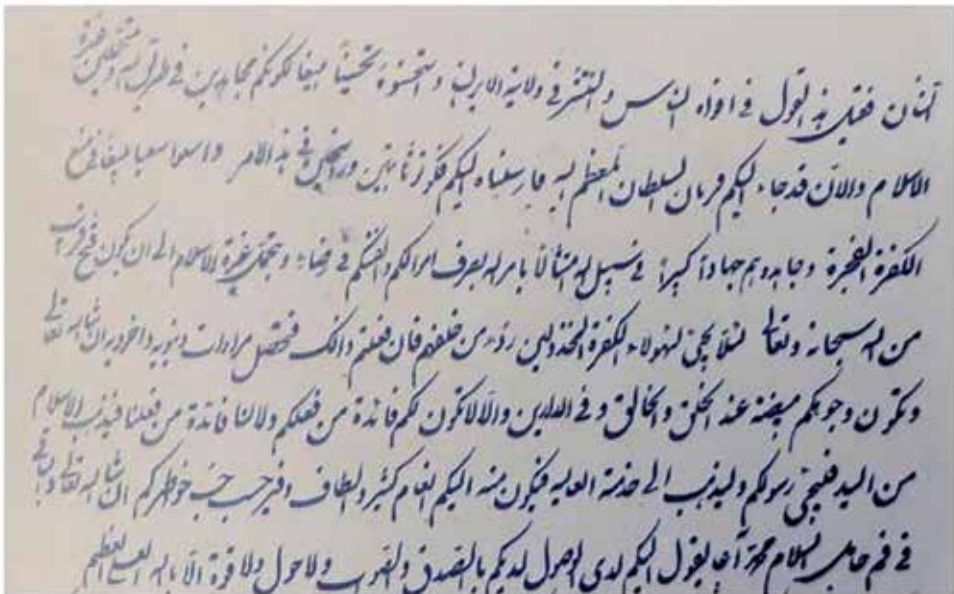 آنان فقيل هذا القول في افواه الناس وانتشر في ولاية الايران واستحسنوه تحسيناً بليغا لكونكم مجاهدين في طريق الله و غيرة
الاسلام والآن قد جاء اليكم فرمان السلطان المعظم اليه فارسلناه اليكم فكونوا ثابتين وراسخين في هذا الامر واسعوا سعيا بليغا في منع
الكفرة الفجرة وجاهدوهم جهاداً كبيراً في سبيل الله امتثالاً بامر الله بصرف اموالكم وانفسكم في رضاء الله وبحمية غيرة الاسلام الى ان يكون فتح قريب
من الله سبحانه وتعالى لئلا يجئ لهؤلاء الكفرة المخذولين ردء من خلفهم فان فعلتم ذالك فتحصل مرادات دنيوية واخروية ان شاء الله تعالى
وتكون وجوهكم مبيضة عند الخلق والخالق وفي الدارين والا لا تكون لكم فائدة من فعلكم ولا لنا فائدة من فعلنا فيذهب الاسلام
من اليد فيجئ رسولكم وليذهب الى خدمة العالية فيكون منه اليكم انعام كثير والطاف وفير حسب خواطركم ان شاء الله تعالى
في فم حامل السلام محمد آغا يقول اليكم لدى الوصول لديكم بالصدق والصواب ولا حول ولا قوة الا بالله العلي العظيم